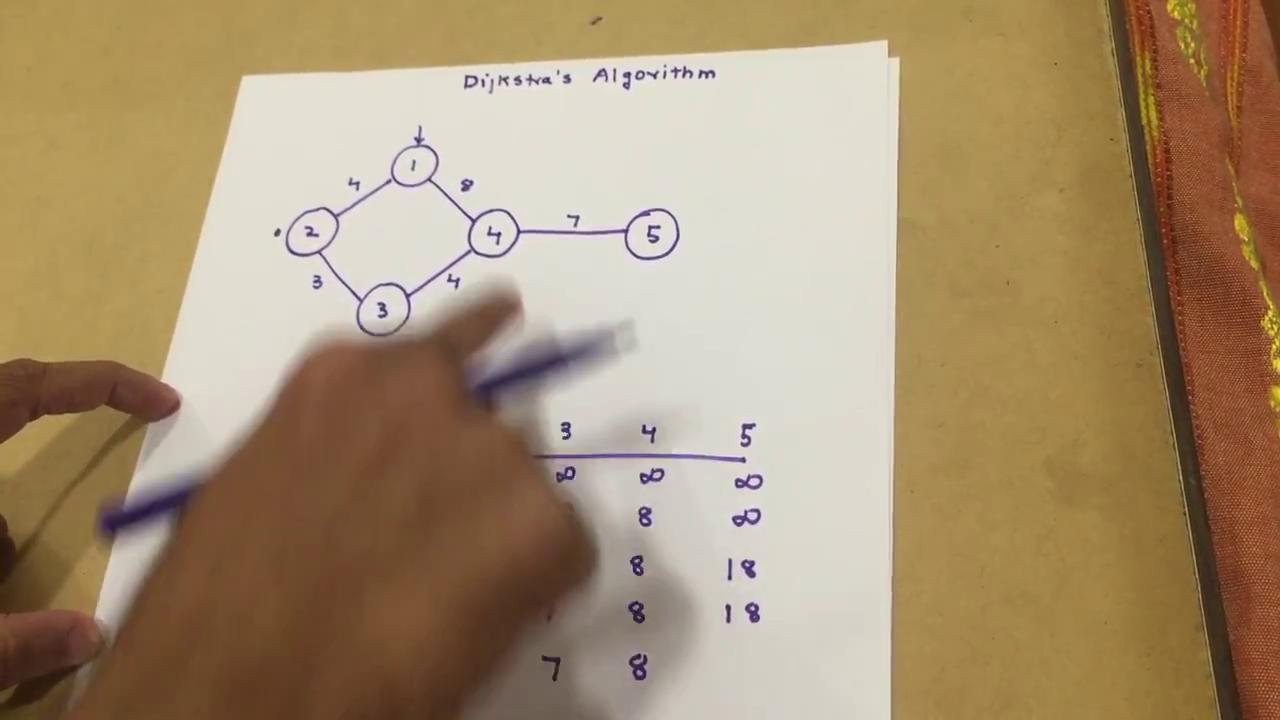 Dijkstra's Algorithm
1
4 8
2 4 7 5
3 4
3
3 4 5
∞ ∞ ∞
8 ∞
8 18
8 18
7 8